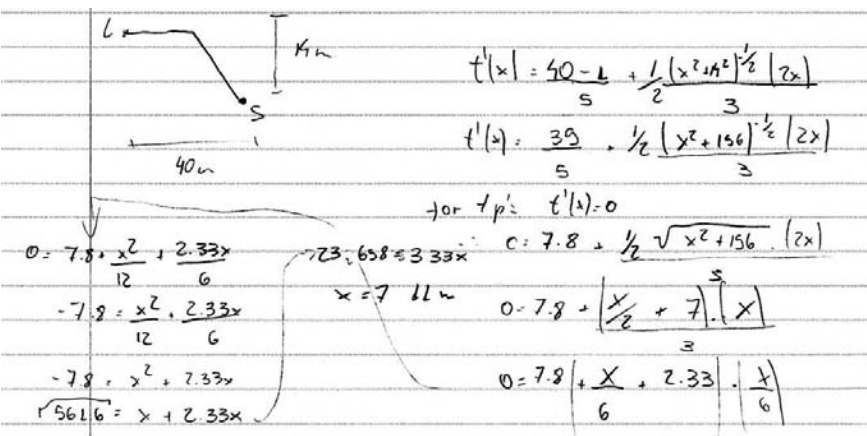 L
S
40m
t'(x) = 40-1/5 + 1/2 (x²+14²)^-1/2 (2x)/3
t'(x) = 39/5 + 1/2 (x²+156)^-1/2 (2x)/3
for t'(x)=0
0 = 7.8 + 1/2 √x²+156 . (2x)/3
0 = 7.8 + (x/2 + 7).(x)/3
0 = 7.8 (+ x/6 + 2.33) . (x/6)
0 = 7.8 + x²/12 + 2.33x/6
-7.8 = x²/12 + 2.33x/6
-7.8 = x² + 2.33x
√5616 = x + 2.33x
23.658 = 3.33x
x = 7.11m